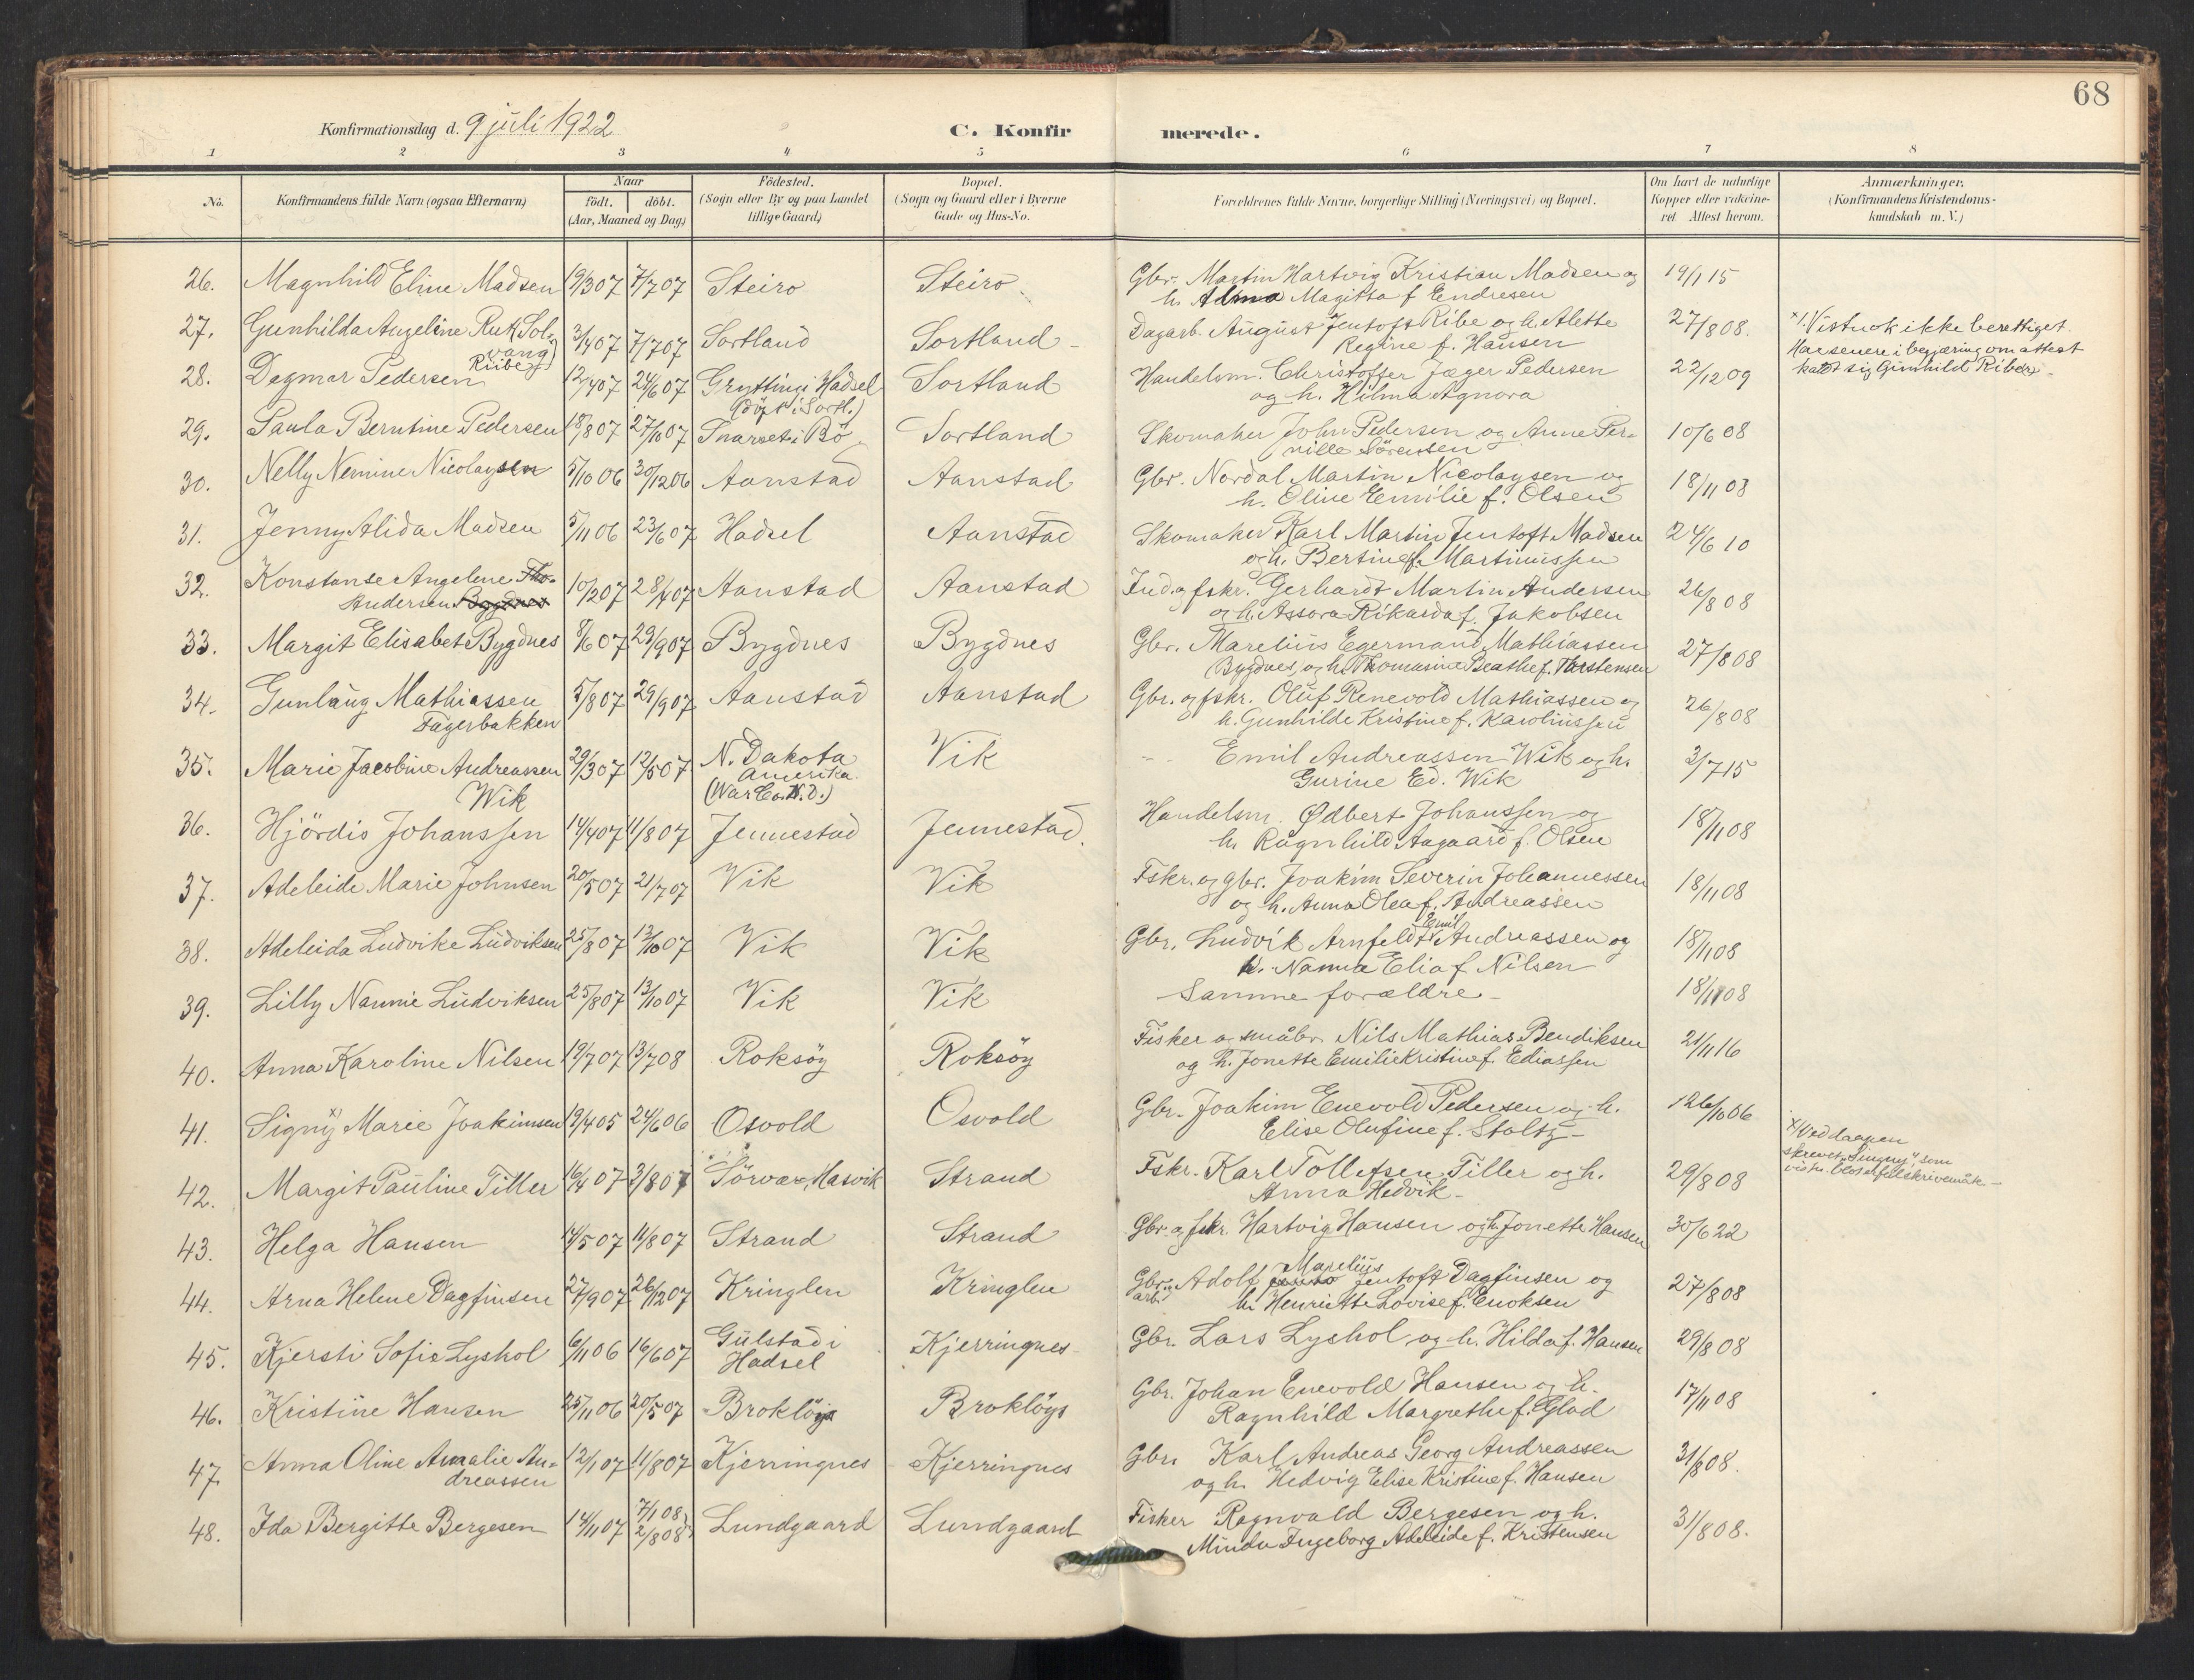 68
Konfirmationsdag d. 9 juli 1922
C. Konfirmerede.
1 2 3 4 5 6 7 8
No.
Konfirmandens fulde Navn (ogsaa Efternavn)
Naar
födt. döbt.
(Aar, Maaned og Dag)
Födested.
(Sogn eller By og paa Landet
tillige Gaard)
Bopæl.
(Sogn og Gaard eller i Byerne
Gade og Hus-No.
Forældrenes fulde Navne, borgerlige Stilling (Næringsvei) og Bopæl.
Om havt de naturlige
Kopper eller vakcine-
ret. Attest herom.
Anmærkninger,
(Konfirmandens Kristendoms-
kundskab m. V.)
26. Magnhild Eline Madsen 19/3 07 7/7 07 Steiro Steiro Gbr. Martin Hartvig Kristian Madsen og 19/1 15
h. Magitta f. Endresen
27. Gunhilda Angeline Rut Sol- 3/4 07 7/7 07 Sortland Sortland Dagarb. August Jentoft Ribe og h. Alette 27/8 08.
vang) Ribe Regine f. Hansen
x) Vistnok ikke berettiget.
Har senere i begjæring om attest
kaldt sig Gunhild Ribe.
28. Dagmar Pedersen 12/4 07 24/6 07 Gryttingi Hadsel Sortland Handelsm. Christoffer Jæger Pedersen 22/12 09
(döpt i Sortl.) og h. Hilma Agnora
29. Paula Berntine Pedersen 18/8 07 27/10 07 Snarset i Bö Sortland Skomaker John Pedersen og Anne Per- 10/6 08
nille Sörensen
30. Nelly Nemine Nicolaysen 5/10 06 30/12 06 Aanstad Aanstad Gbr. Nordal Martin Nicolaysen og 18/11 08
h. Oline Emilie f. Olsen
31. Jenny Alida Madsen 5/11 06 23/6 07 Hadsel Aanstad Skomaker Karl Martin Jentoft Madsen 24/6 10
og h. Bertine f. Martinussen
32. Konstanse Angelene Tho- 10/2 07 28/4 07 Aanstad Aanstad Ind. og fskr. Gerhardt Martin Andersen 26/8 08
Andersen Bygdnes og h. Assora Rikarda f. Jakobsen
33. Margit Elisabet Bygdnes 8/6 07 29/9 07 Bygdnes Bygdnes Gbr. Marelius Egermand Mathiassen 27/8 08
Bygdnes, og h. Thomasine Beathe f. Torstensen
34. Gunlaug Mathiassen 5/8 07 29/9 07 Aanstad Aanstad Gbr. og fskr. Oluf Renevold Mathiassen og 26/8 08
Fagerbakken h. Gunhilde Kristine f. Karolinssen
35. Marie Jacobine Andreassen 29/3 07 12/5 07 N. Dakota Vik - - Emil Andreassen Wik og h. 3/7 15
Wik Amerika Gurine Ed. Wik
(War Co. N.D.)
36. Hjördis Johanssen 14/4 07 11/8 07 Jennestad Jennestad. Handelsm. Ødbert Johanssen og 18/11 08
h. Ragnhild Aagaard f. Olsen
37. Adeleide Marie Johnsen 20/5 07 21/7 07 Vik Vik Fskr. og gbr. Joakim Severin Johannessen 18/11 08
og h. Anna Olea f. Andreassen
38. Adeleida Ludvike Ludviksen 25/8 07 13/10 07 Vik Vik Gbr. Ludvik Arnfeldt Emil Andreassen og 18/11 08
h. Nanna Elia f. Nilsen
39. Lilly Nannie Ludviksen 25/8 07 13/10 07 Vik Vik Samme forældre - 18/11 08
40. Anna Karoline Nilsen 19/7 07 13/7 08 Roksöy Roksöy Fisker og småbr. Nils Mathias Bendiksen 21/11 16
og h. Jonette Emilie Kristine f. Ediassen
41. Signy x) Marie Joakimsen 19/4 05 24/6 06 Osvold Osvold Gbr. Joakim Enevold Pedersen og h. 26/10 06
Elise Olufine f. Stoltz -
x) Ved daapen
skrevet "Singny", som
vistn. blot er feilskrivemåte. -
42. Margit Pauline Tiller 16/4 07 3/8 07 Sörvær, Hasvik Strand Fskr. Karl Tollefsen Tiller og h. 29/8 08
Anna Hedvik -
43. Helga Hansen 14/5 07 11/8 07 Strand Strand Gbr. og fskr. Hartvig Hansen og h. Jonette Hansen 30/6 22
44. Arna Helene Dagfinsen 27/9 07 26/12 07 Kringlen Kringlen Gbr. og arb. Adolf Marelius Jentoft Dagfinsen og 27/8 08
h. Henriette Lovise f. Enoksen
45. Kjersti Sofie Lyshol 6/11 06 16/6 07 Gulstad i Kjerringnes Gbr. Lars Lyshol og h. Hilda f. Hansen 29/8 08
Hadsel
46. Kristine Hansen 25/11 06 20/5 07 Broklöys Broklöys Gbr. Johan Enevold Hansen og h. 17/11 08
Ragnhild Margrethe f. Glad
47. Anna Oline Amalie An- 12/1 07 11/8 07 Kjerringnes Kjerringnes Gbr. Karl Andreas Georg Andreassen 31/8 08.
dreassen og h. Hedvig Elise Kristine f. Hansen
48. Ida Bergitte Bergesen 14/11 07 7/1 08 2/8 08 Lundgaard Lundgaard Fisker Ragnvald Bergesen og h. 31/8 08.
Minda Ingeborg Adeleide f. Kristensen